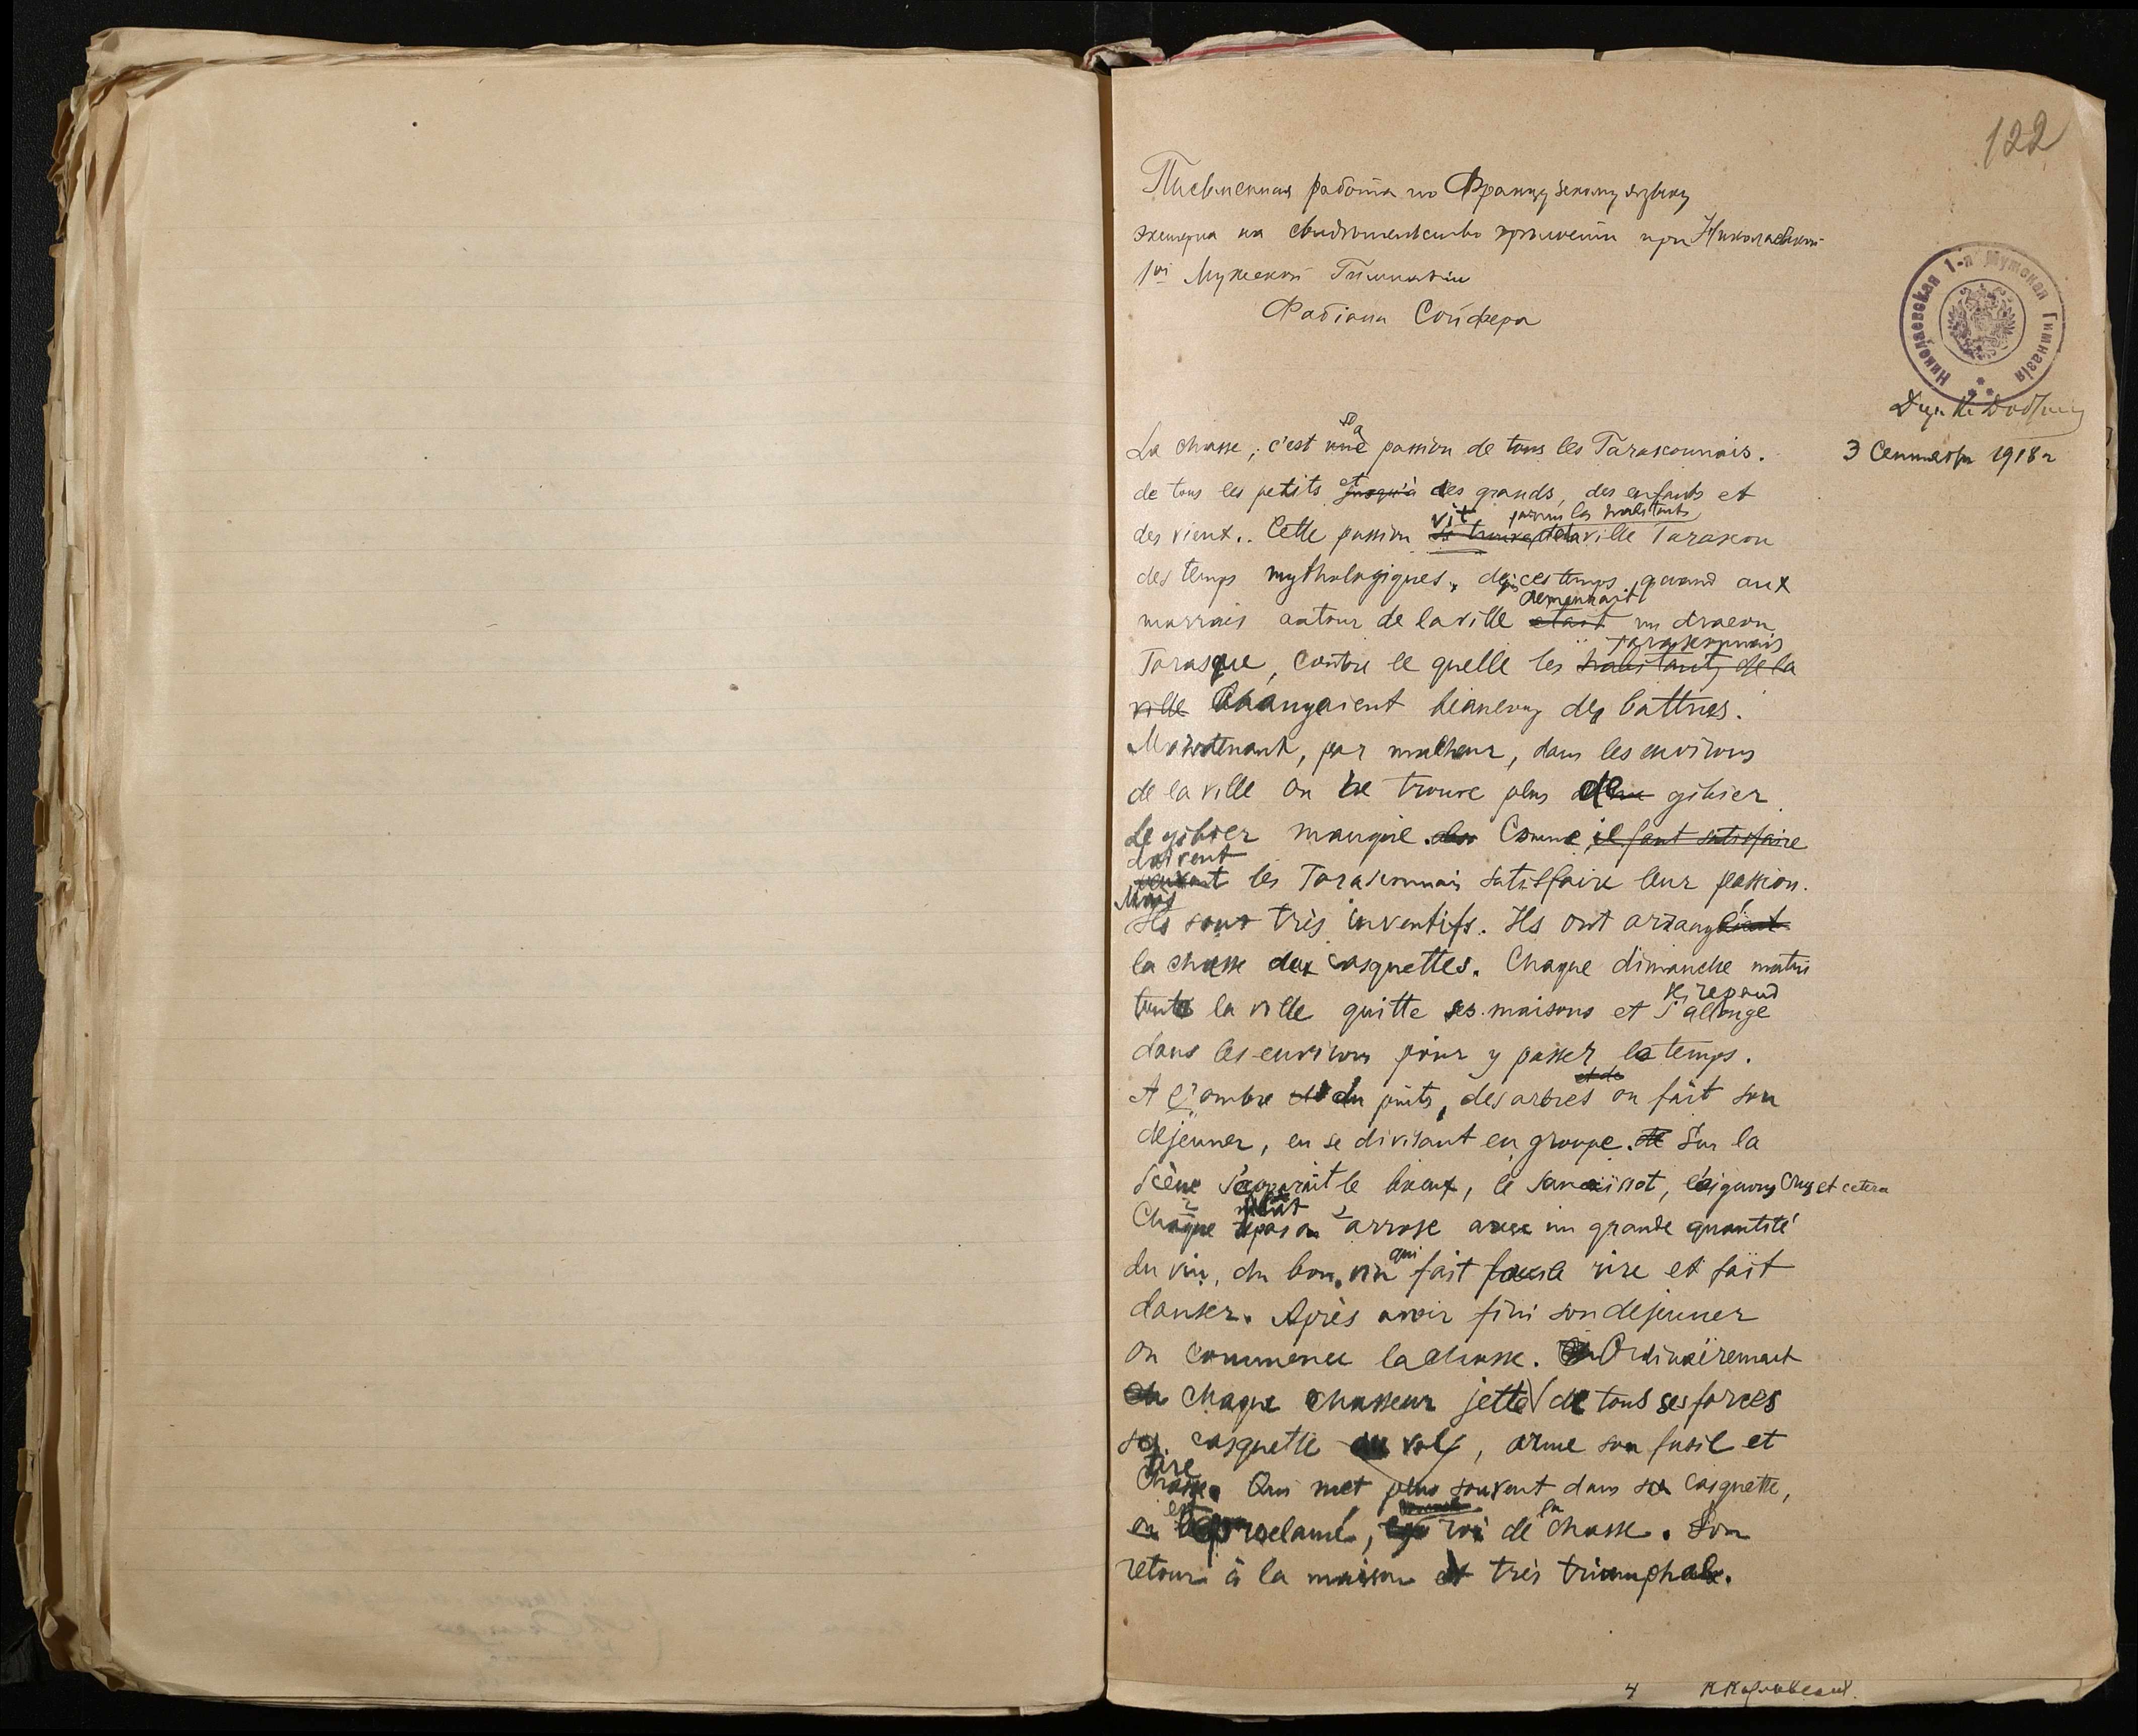 122
Письменная работа по Французскому языку
экстерна на свидѣтельство зрѣлости при Николаевской
1ой Мужской Гимназiи
Фабiана Сойфера
Николаевская 1-я Мужская Гимназiя
3 Сентября 1918 г
sa
La chasse, c'est une passion de tous les Tarasconnais.
et
de tous les petits jusqu'à des grands, des enfants et
vit parmi les habitants
des vieux.. Cette passion se trouve de la ville Tarascon
des temps mythologiques, depuis ces temps, quand aux
demeurait
marrais autour de la ville etait un dracon
Tarasconnais
Tarasque, contre le quelle les habitants de la
ville beaucoup des battues.
Maintenant, par malheur, dans les environs
de la ville on ne trouve plus de gibier.
Le gibier manque. Comme il faut satisfaire
doivent
veulent les Tarasconnais satisfaire leur passion.
Mais
Ils sont très inventifs. Ils ont arrangé
la chasse aux casquettes. Chaque dimanche matin
se repand
toute la ville quitte ses maisons et s'allonge
dans les environs pour y passer le temps.
et de
A l'ombre du puits, des arbres on fait son
dejeuner, en se divisant en groupe. Sur la
scène s'apparait le boeuf, le saucissot, et cetera
Chaque repas on arrose avec un grande quantité
qui
du vin, du bon vin fait faire rire et fait
danser. Après avoir fini son dejeuner
on commence la chasse. Ordinairement
chaque chasseur jette de tous ses forces
sa casquette au vol, arme son fusil et
tire
chasse. Qui met plus souvent dans sa casquette,
est la
on proclamé, roi de chasse. Son
retour à la maison est très triumphale.
4